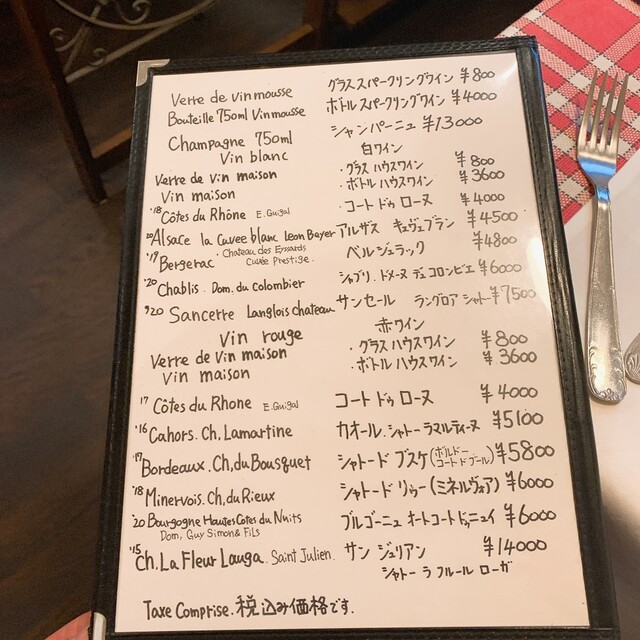 Verre de vin mousse グラススパークリングワイン ¥800
Bouteille 750ml Vin mousse ボトルスパークリングワイン ¥4000
Champagne 750ml シャンパーニュ ¥13000
Vin blanc 白ワイン
Verre de vin maison ・グラス ハウスワイン ¥800
Vin maison ・ボトル ハウスワイン ¥3600
'18 Côtes du Rhône E.Guigal ・コート ドゥ ローヌ ¥4000
'20 Alsace la Cuvee blanc Leon Beyer アルザス キュヴェブラン ¥4500
'19 Bergerac Chateau des Eyssards Cuvée Prestige. ベルジュラック ¥4800
'20 Chablis. Dom. du colombier シャブリ.ドメーヌ デュ コロンビエ ¥6000
'20 Sancerre Langlois chateau サンセール ラングロア シャトー ¥7500
Vin rouge 赤ワイン
Verre de Vin maison ・グラスハウスワイン ¥800
Vin maison ・ボトル ハウスワイン ¥3600
'17 Côtes du Rhone E.Guigal コート ドゥ ローヌ ¥4000
'16 Cahors. Ch. Lamartine カオール.シャトー ラマルティーヌ ¥5100
'19 Bordeaux. Ch, du Bousquet シャトード ブスケ(ボルドー コート ド ブール) ¥5800
'18 Minervois. Ch, du Rieux シャトード リゥー(ミネルヴォア) ¥6000
'20 Bourgogne Hautes Cotes du Nuits Dom, Guy Simon & Fils ブルゴーニュ オートコート ドゥニュイ ¥6000
'15 Ch. La Fleur Lauga. Saint Julien. サン ジュリアン ¥14000
シャトー ラ フルール ローガ
Taxe Comprise. 税込み価格です.